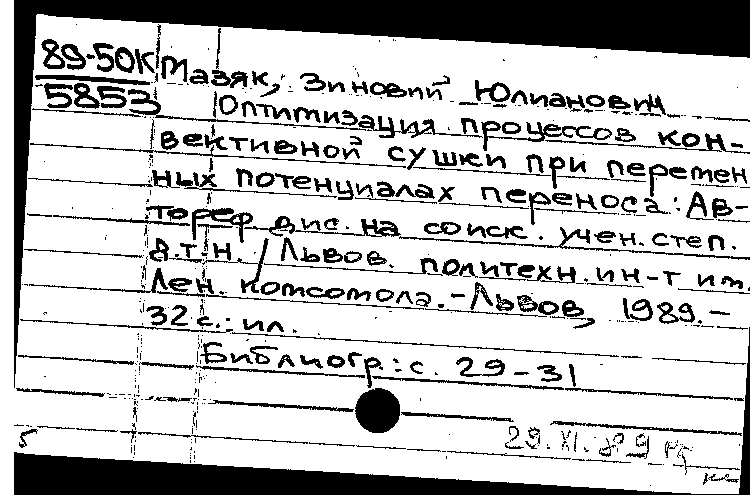 89-50К Мазяк, Зиновий Юлианович
5853 Оптимизация процессов кон-
вективной сушки при перемен
ных потенциалах переноса: Ав-
тореф дис. на соиск. учен. степ.
д.т.н. / Львов. политехн. ин-т им.
Лен. комсомола. - Львов, 1989. -
32 с.: ил.
Библиогр.: с. 29-31
29. XI. 89
5